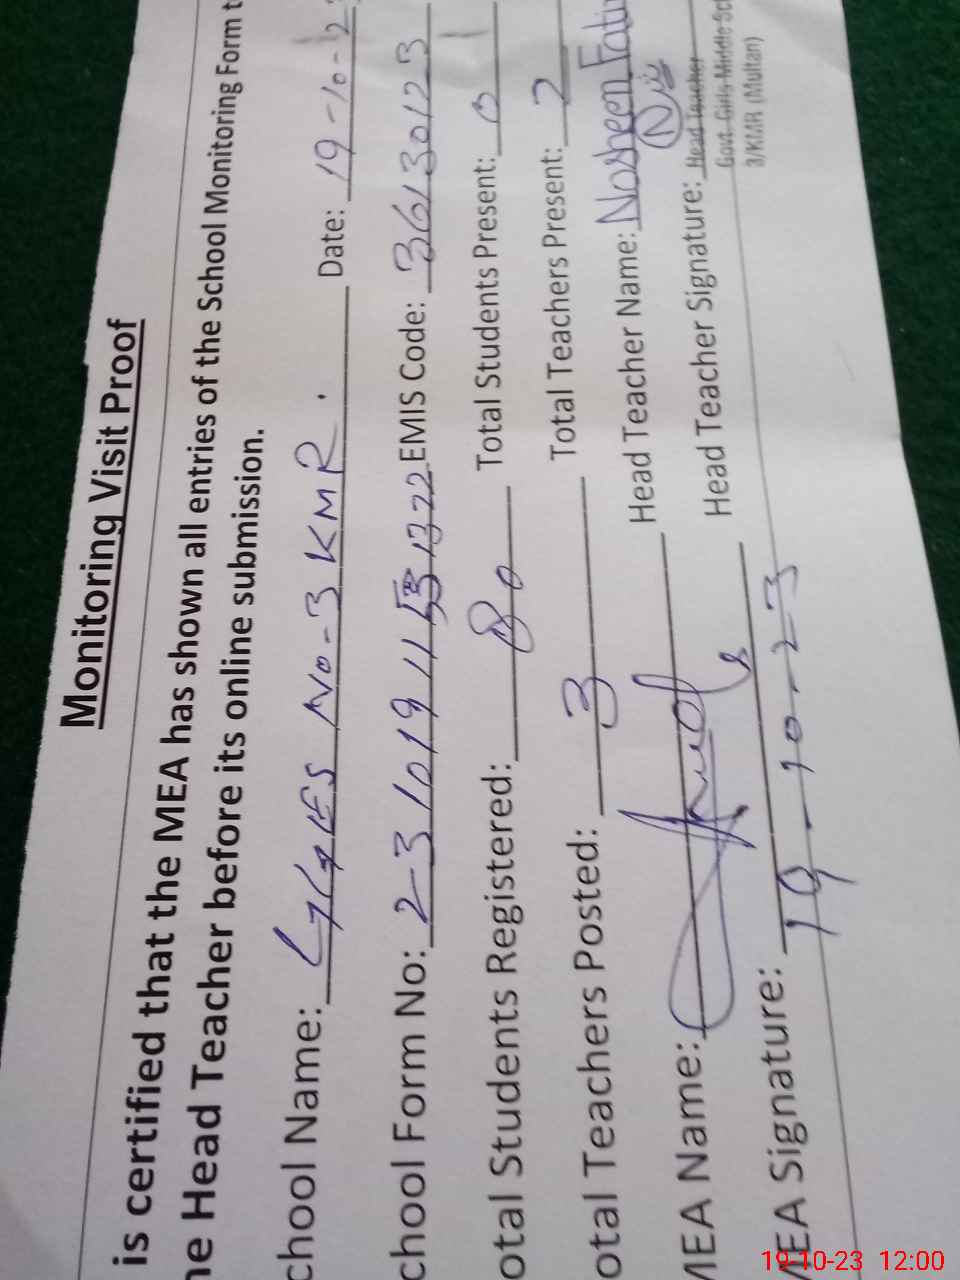 Monitoring Visit Proof
is certified that the MEA has shown all entries of the School Monitoring Form t
he Head Teacher before its online submission.
chool Name: GGES No-3 KMR. Date: 19-10-23
chool Form No: 2-31019 11 1322 EMIS Code: 36130123
otal Students Registered: 80 Total Students Present: 0
otal Teachers Posted: 3 Total Teachers Present: 2
MEA Name: Head Teacher Name: Nosheen Fati
MEA Signature: 19-10-23 Head Teacher Signature:
Head Teacher
Govt. Girls Middle Sc
3/KMR (Multan)
19-10-23 12:00